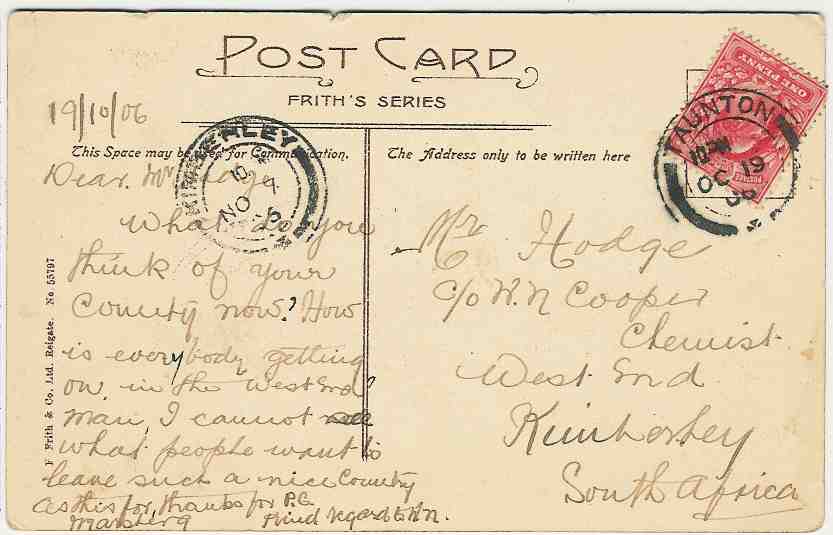 POST CARD
FRITH'S SERIES
19/10/06
This Space may be used for Communication.
The Address only to be written here
Dear. Mr Hodge
What do you
think of your
County now? How
is everybody getting
on, in the West End?
Man, I cannot see
what people want to
leave such a nice County
as this for, thanks for P.C.
Kind regards to
Mr Hodge
c/o W. N Cooper
Chemist.
West End.
Kimberley
South Africa
KIMBERLEY
NO 7
TAUNTON
OC 19
06
ONE PENNY
POSTAGE
F Frith & Co. Ltd. Reigate. No 55797